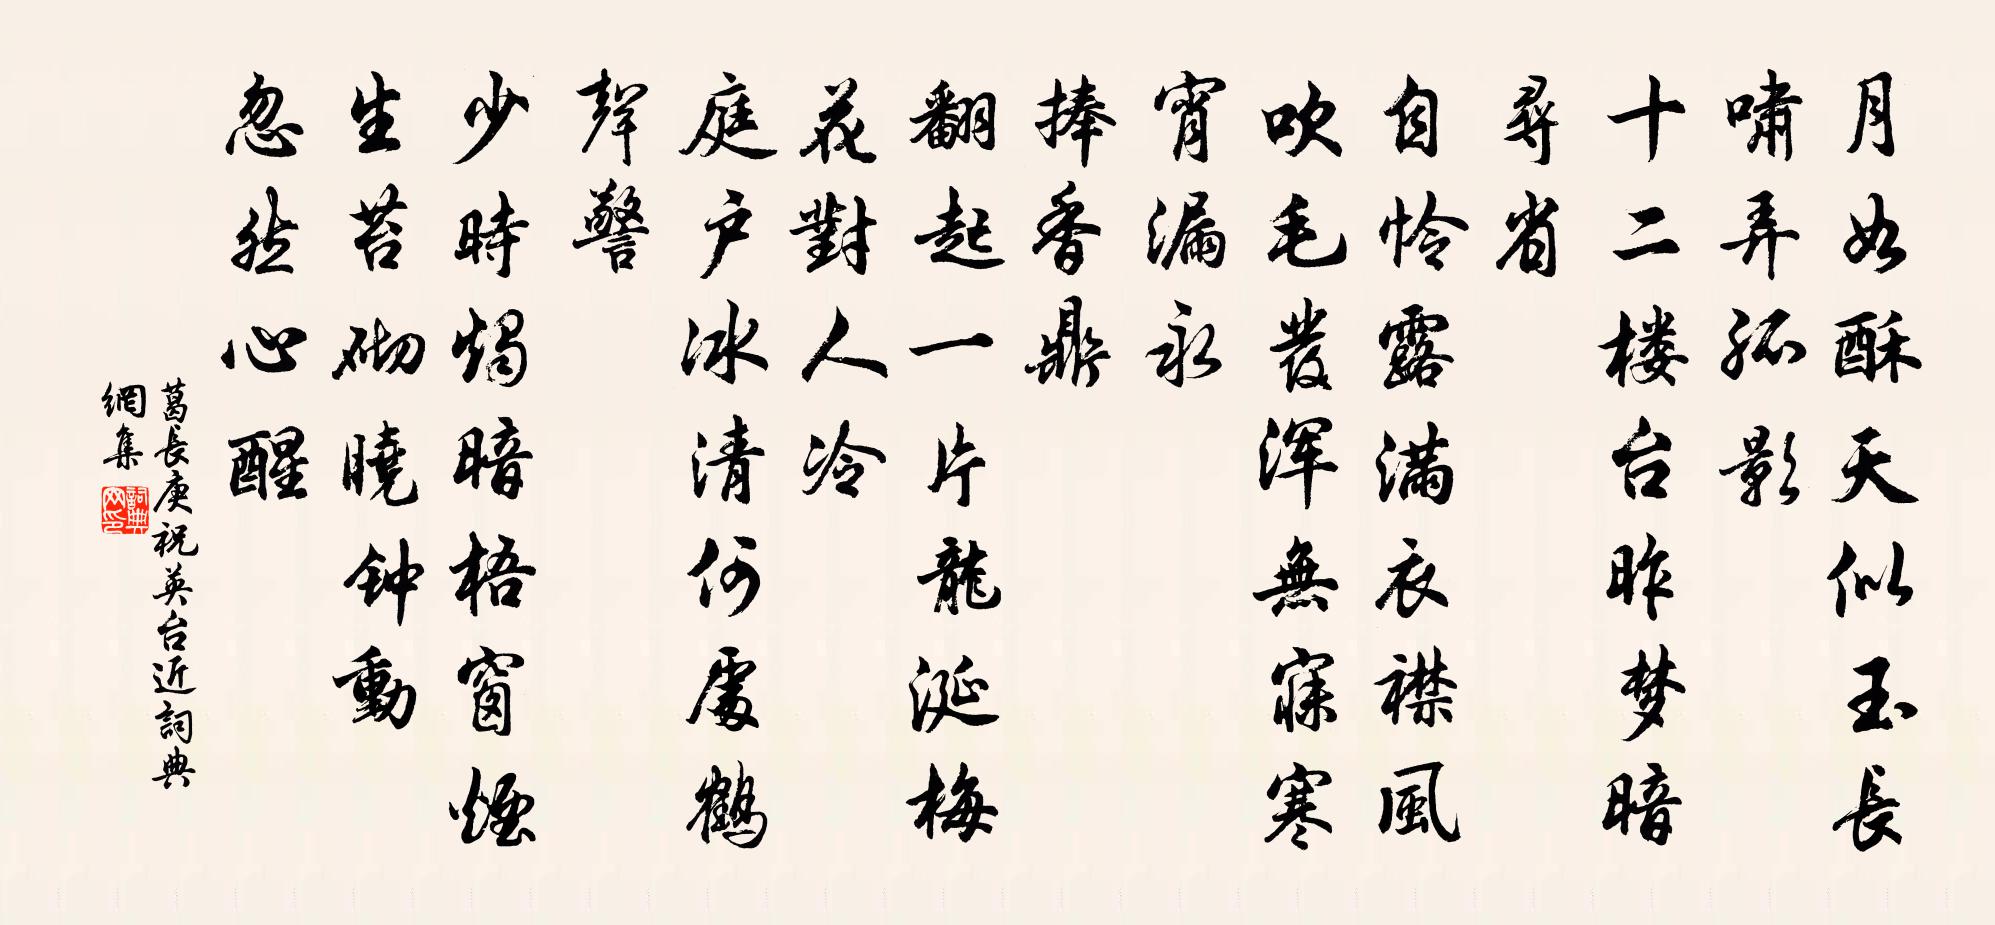 月如酥天似玉長
嘯弄孤影
十二楼台昨梦暗
尋省
自怜露滿衣襟風
吹毛髮浑無寐寒
宵漏永
捧香鼎
翻起一片龍涎梅
花對人冷
庭户冰清何處鶴
聲警
少時燭暗梧窗煙
生苔砌曉钟動
忽然心醒
葛長庚祝英台近詞典
網集
詞典
网印